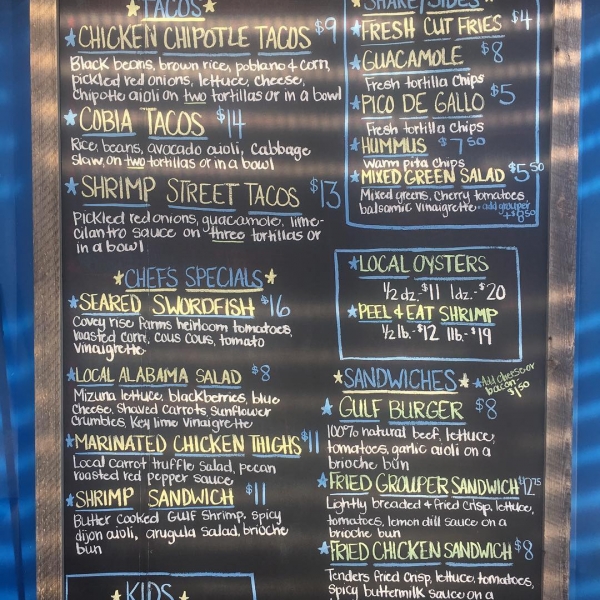 TACOS
CHICKEN CHIPOTLE TACOS $9
Black beans, brown rice, poblano & corn,
pickled red onions, lettuce, cheese,
Chipotle aioli on two tortillas or in a bowl
COBIA TACOS $14
Rice, beans, avocado aioli, Cabbage
slaw, on two tortillas or in a bowl
SHRIMP STREET TACOS $13
Pickled red onions, guacamole, lime-
cilantro sauce on three tortillas or
in a bowl
CHEFS SPECIALS
SEARED SWORDFISH $16
Covey rise Farms heirloom tomatoes,
roasted corn, cous cous, tomato
vinaigrette
LOCAL ALABAMA SALAD $8
Mizuna lettuce, blackberries, blue
Cheese, Shaved Carrots, Sunflower
Crumbles Key lime Vinaigrette
MARINATED CHICKEN THIGHS $11
Local carrot truffle Salad, pecan
roasted red pepper sauce
SHRIMP SANDWICH $11
Butter cooked Gulf Shrimp, spicy
dijon aioli, arugula Salad, brioche
bun
KIDS
SHARE / SIDES
FRESH CUT FRIES $4
GUACAMOLE $8
Fresh tortilla Chips
PICO DE GALLO $5
Fresh tortilla Chips
HUMMUS $7.50
Warm pita Chips
MIXED GREEN SALAD $5.50
Mixed greens, Cherry tomatoes
balsamic Vinaigrette - add grouper
+$8.50
LOCAL OYSTERS
1/2 dz. - $11 1dz. - $20
PEEL & EAT SHRIMP
1/2 lb. - $12 1lb. - $19
SANDWICHES
Add Cheese or
bacon
$1.50
GULF BURGER $8
100% natural beef, lettuce,
tomatoes, garlic aioli on a
brioche bun
FRIED GROUPER SANDWICH $12.75
Lightly breaded & fried Crisp, lettuce,
tomatoes, lemon dill sauce on a
brioche bun
FRIED CHICKEN SANDWICH $8
Tenders fried crisp, lettuce, tomatoes,
spicy buttermilk sauce on a